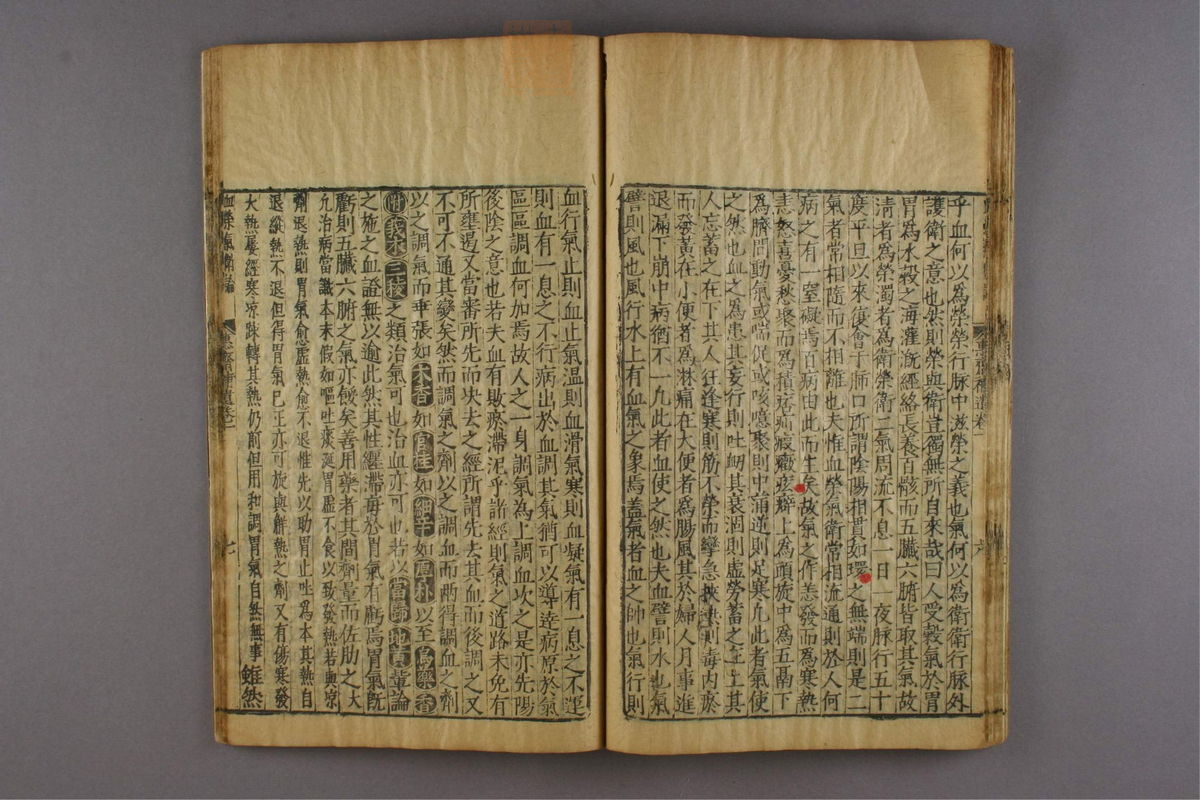 乎血何以為榮榮行脉中滋榮之義也氣何以為衛衛行脉外
護衛之意也然則榮與衛豈獨無所自來哉曰人受穀氣於胃
胃為水穀之海灌溉經絡長養百骸而五臟六腑皆取其氣故
清者為榮濁者為衛榮衛二氣周流不息一日一夜脉行五十
度平旦以來復會于肺口所謂陰陽相貫如環之無端則是二
氣者常相隨而不相離也夫惟血榮氣衛常相流通則於人何
病之有一窒礙焉百病由此而生矣故氣之作恙發而為寒熱
恚怒喜憂愁聚而為積痞疝瘕癥癖上為頭旋中為五鬲下
為臍間動氣或喘促或咳噫聚則中滿逆則足寒九此者氣使
之然也血之為患其妄行則吐衄其衰涸則虛勞蓄之上其
人忘蓄之在下其人狂逢寒則筋不榮而攣急挾熱則毒内瘀
而發黃在小便者為淋痛在大便者為腸風其於婦人月事進
退漏下崩中病猶不一九此者血使之然也夫血譬則水也氣
譬則風也風行水上有血氣之象焉蓋氣者血之帥也氣行則
血行氣止則血止氣溫則血滑氣寒則血凝氣有一息之不運
則血有一息之不行病出於血調其氣猶可以導達病原於氣
區區調血何加焉故人之一身調氣為上調血次之是亦先陽
後陰之意也若夫血有敗瘀滯泥乎諸經則氣之道路未免有
所壅遏又當審所先而決去之經所謂先去其血而後調之又
不可不通其變矣然而調氣之劑以之調血而兩得調血之劑
以之調氣而乖張如木香如官桂如細辛如厚朴以至烏藥香
附莪朮三稜之類治氣可也治血亦可也若以當歸地黃輩論
之施之血證無以逾此然其性纏滯每於胃氣有虧焉胃氣既
虧則五臟六腑之氣亦餒矣善用藥者其間劑量而佐助之大
九治病當識本末假如嘔吐痰涎胃虛不食以致發熱若專凉
劑退熱則胃氣愈虛熱愈不退惟先以助胃止吐為本其熱自
退縱熱不退但得胃氣已正亦可旋與解熱之劑又有傷寒發
大熱屢經寒凉踈轉其熱仍前但用和調胃氣自然無事雖然
七
六